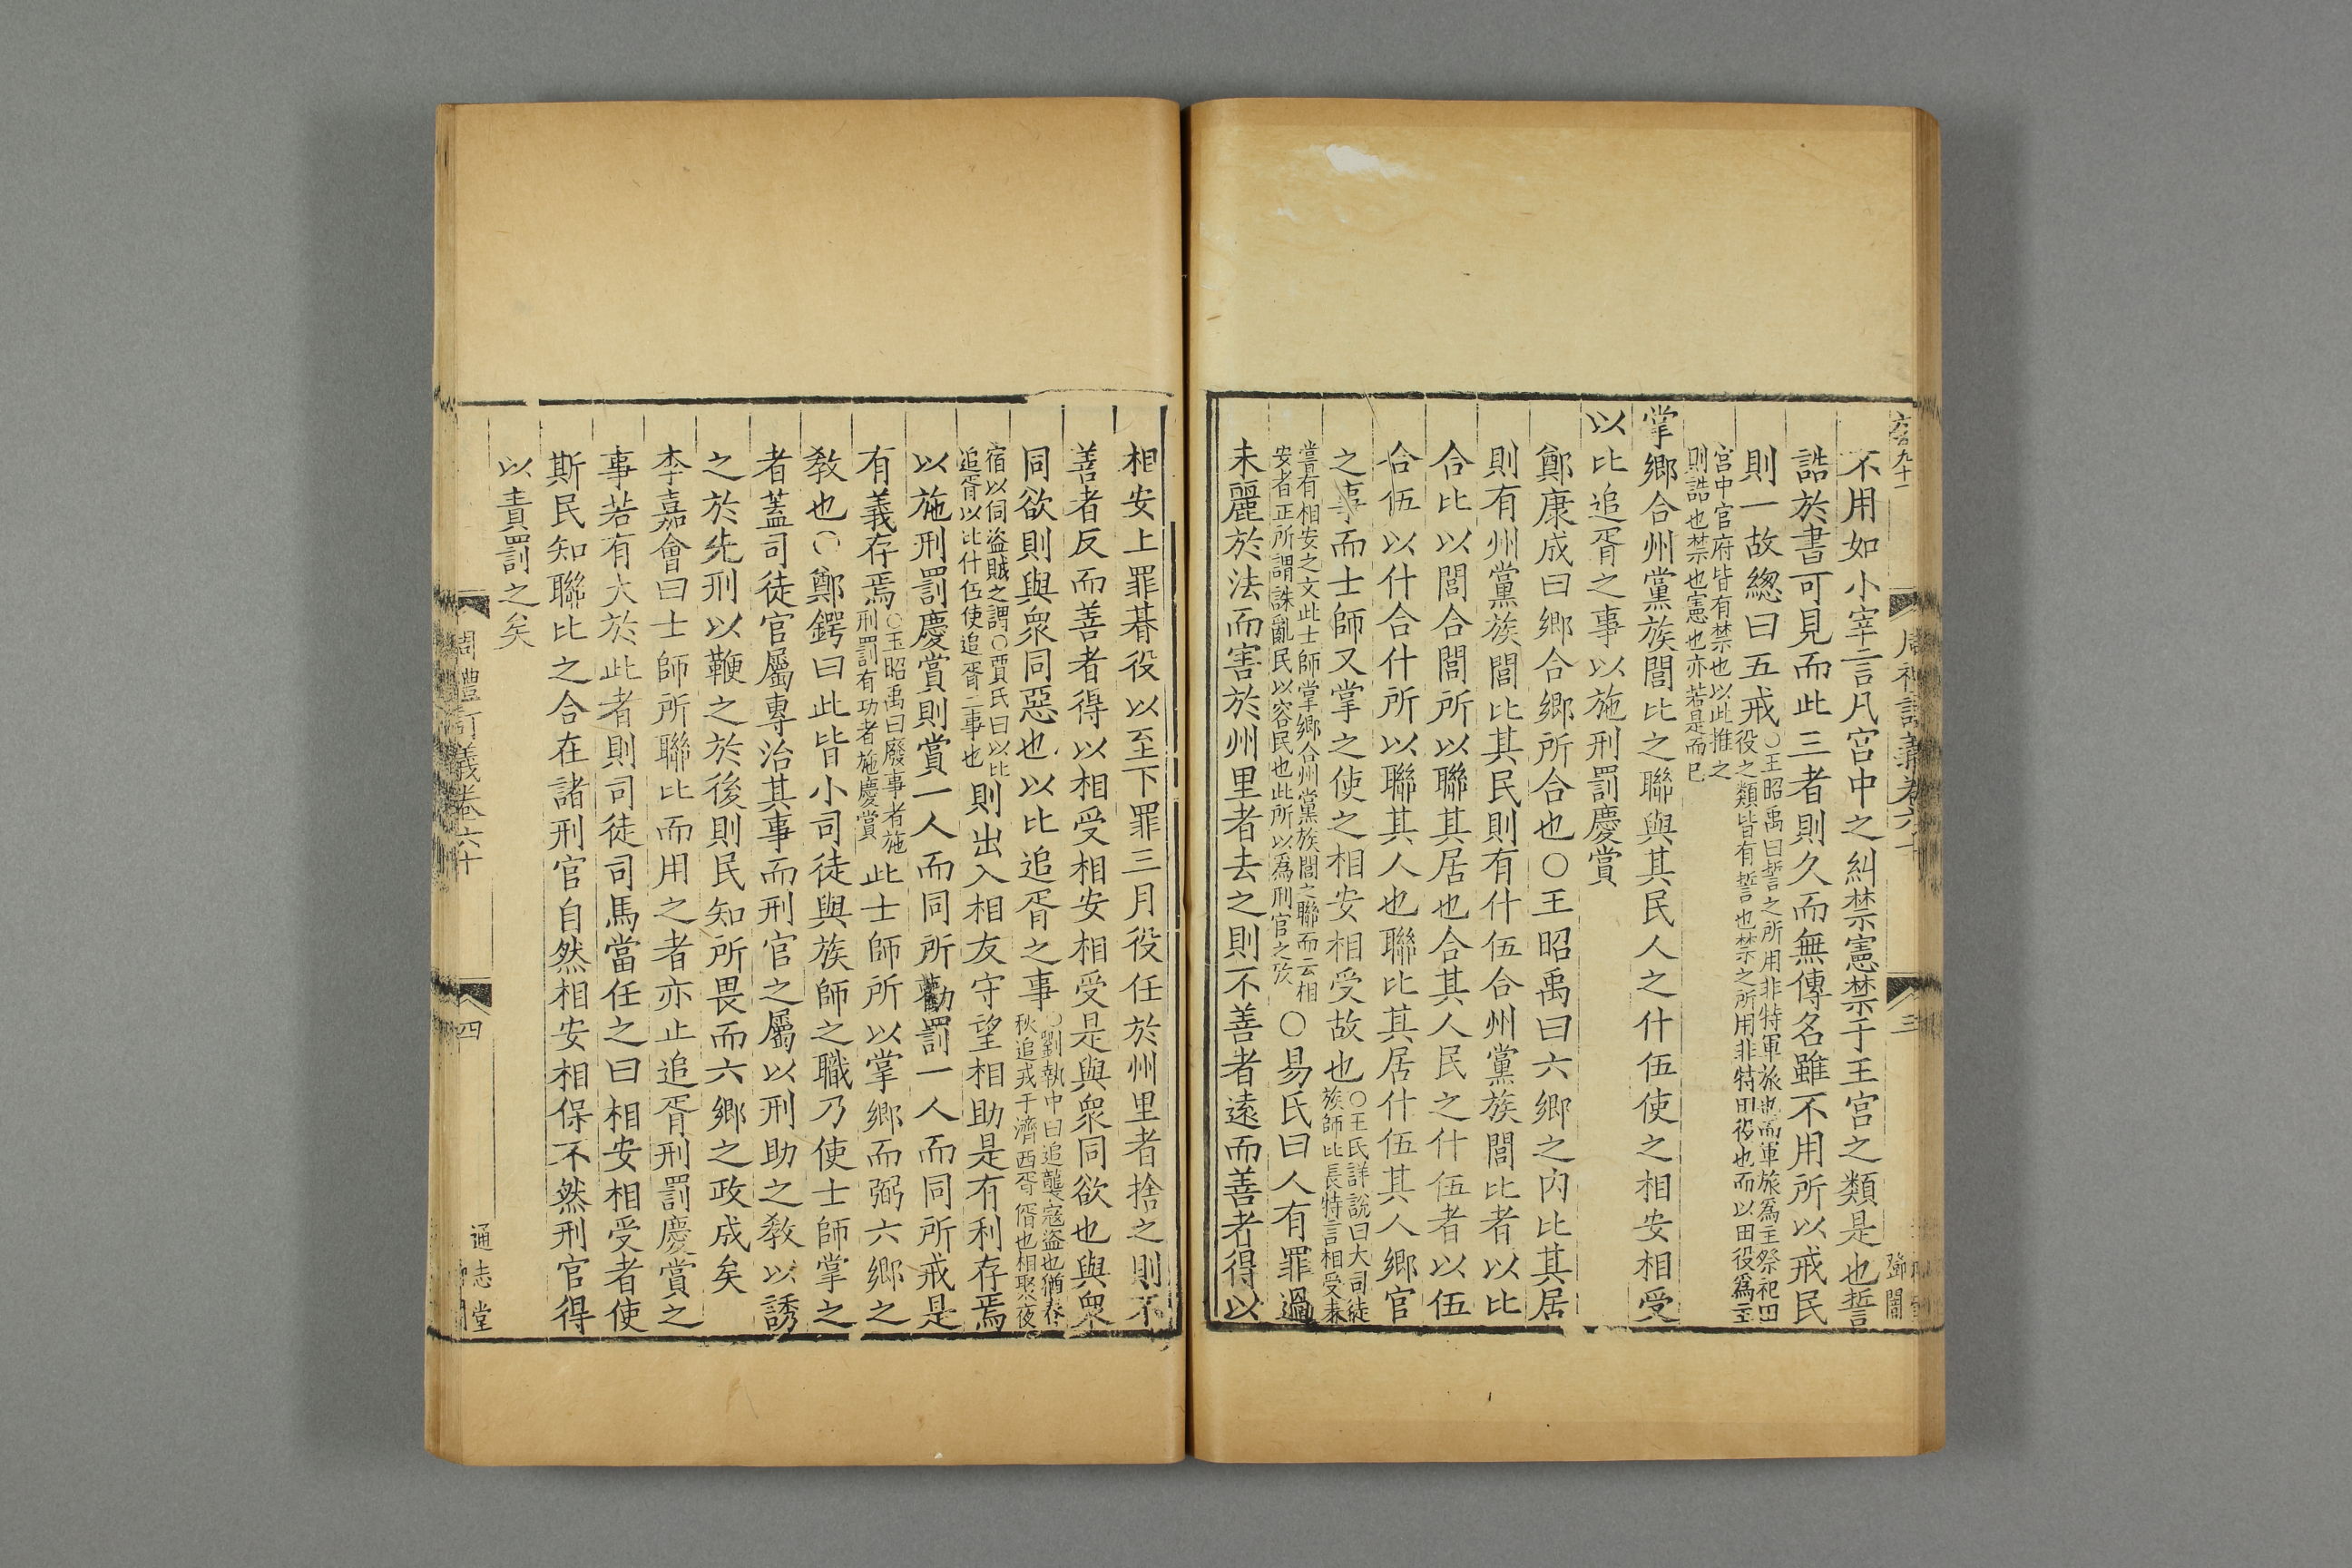 不用如小宰言凡宮中之糾禁憲禁于王宮之類是也誓
誥於書可見而此三者則久而無傳名雖不用所以戒民
則一故緫曰五戒○王昭禹曰誓之所用非特軍旅也而軍旅爲主祭祀田
役之類皆有誓也禁之所用非特田役也而以田役爲主
宮中官府皆有禁也以此推之
則誥也禁也憲也亦若是而已
掌鄉合州黨族閭比之聯與其民人之什伍使之相安相受
以比追胥之事以施刑罰慶賞
鄭康成曰鄉合鄉所合也○王昭禹曰六鄉之内比其居
則有州黨族閭比其民則有什伍合州黨族閭比者以比
合比以閭合閭所以聯其居也合其人民之什伍者以伍
合伍以什合什所以聯其人也聯比其居什伍其人鄉官
之事而士師又掌之使之相安相受故也○王氏詳說曰大司徒
族師比長特言相受未
嘗有相安之文此士師掌鄉合州黨族閭之聯而云相
安者正所謂誅亂民以容民也此所以爲刑官之攷○易氏曰人有罪過
未麗於法而害於州里者去之則不善者遠而善者得以
周禮訂義卷六十
三
鄧閽
相安上罪朞役以至下罪三月役任於州里者捨之則不
善者反而善者得以相受相安相受是與衆同欲也與衆
同欲則與衆同惡也以比追胥之事○劉執中曰追襲寇盜也猶春
秋追戎于濟西胥偦也相聚夜
宿以伺盜賊之謂○賈氏曰以比
追胥以比什伍使追胥二事也則出入相友守望相助是有利存焉
以施刑罰慶賞則賞一人而同所勸罰一人而同所戒是
有義存焉○王昭禹曰廢事者施
刑罰有功者施慶賞此士師所以掌鄉而弼六鄉之
敎也○鄭鍔曰此皆小司徒與族師之職乃使士師掌之
者蓋司徒官屬專治其事而刑官之屬以刑助之敎以誘
之於先刑以鞭之於後則民知所畏而六鄉之政成矣
李嘉會曰士師所聯比而用之者亦止追胥刑罰慶賞之
事若有大於此者則司徒司馬當任之曰相安相受者使
斯民知聯比之合在諸刑官自然相安相保不然刑官得
以責罰之矣
周禮訂義卷六十
四
通志堂